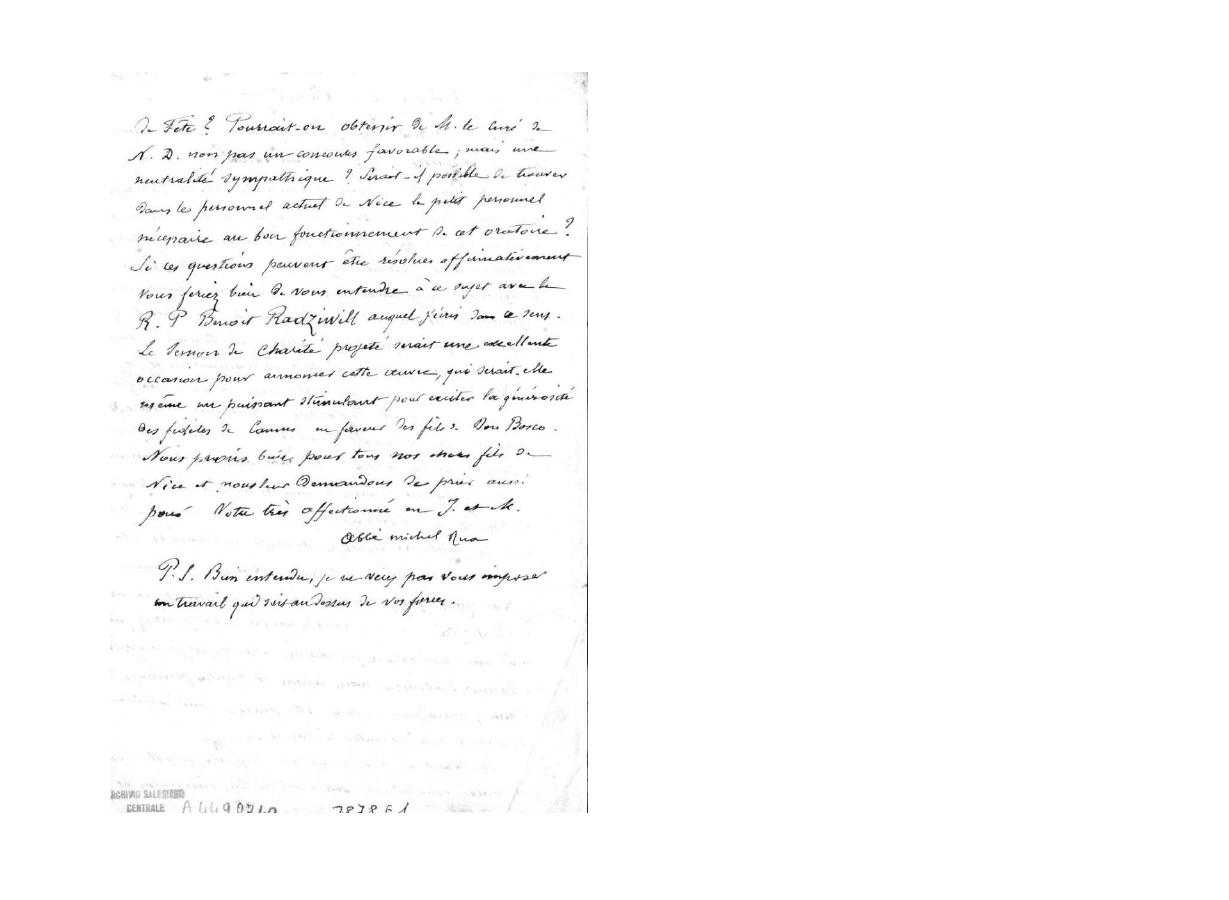 de Fête ? Pourrait-on obtenir de M. le curé de
N. D. non pas un concours favorable ; mais une
neutralité sympathique ? Serait-il possible de trouver
dans le personnel actuel de Nice le petit personnel
nécessaire au bon fonctionnement de cet oratoire ?
Si ces questions peuvent être résolues affirmativement
vous feriez bien de vous entendre à ce sujet avec le
R. P Benoit Radziwill auquel j'écris dans ce sens.
Le Sermon de Charité projeté serait une excellente
occasion pour annoncer cette œuvre, qui serait elle
même un puissant stimulant pour exciter la générosité
des fidèles de Cannes en faveur des fils de Don Bosco.
Nous prions bien pour tous nos chers fils de
Nice et nous leur demandons de prier aussi
pour Votre très affectionné en J. et M.
Abbé Michel Rua
P. S. Bien entendu, je ne veux pas vous imposer
un travail qui soit au dessus de vos forces.
ARCHIVIO SALESIANO
CENTRALE A449